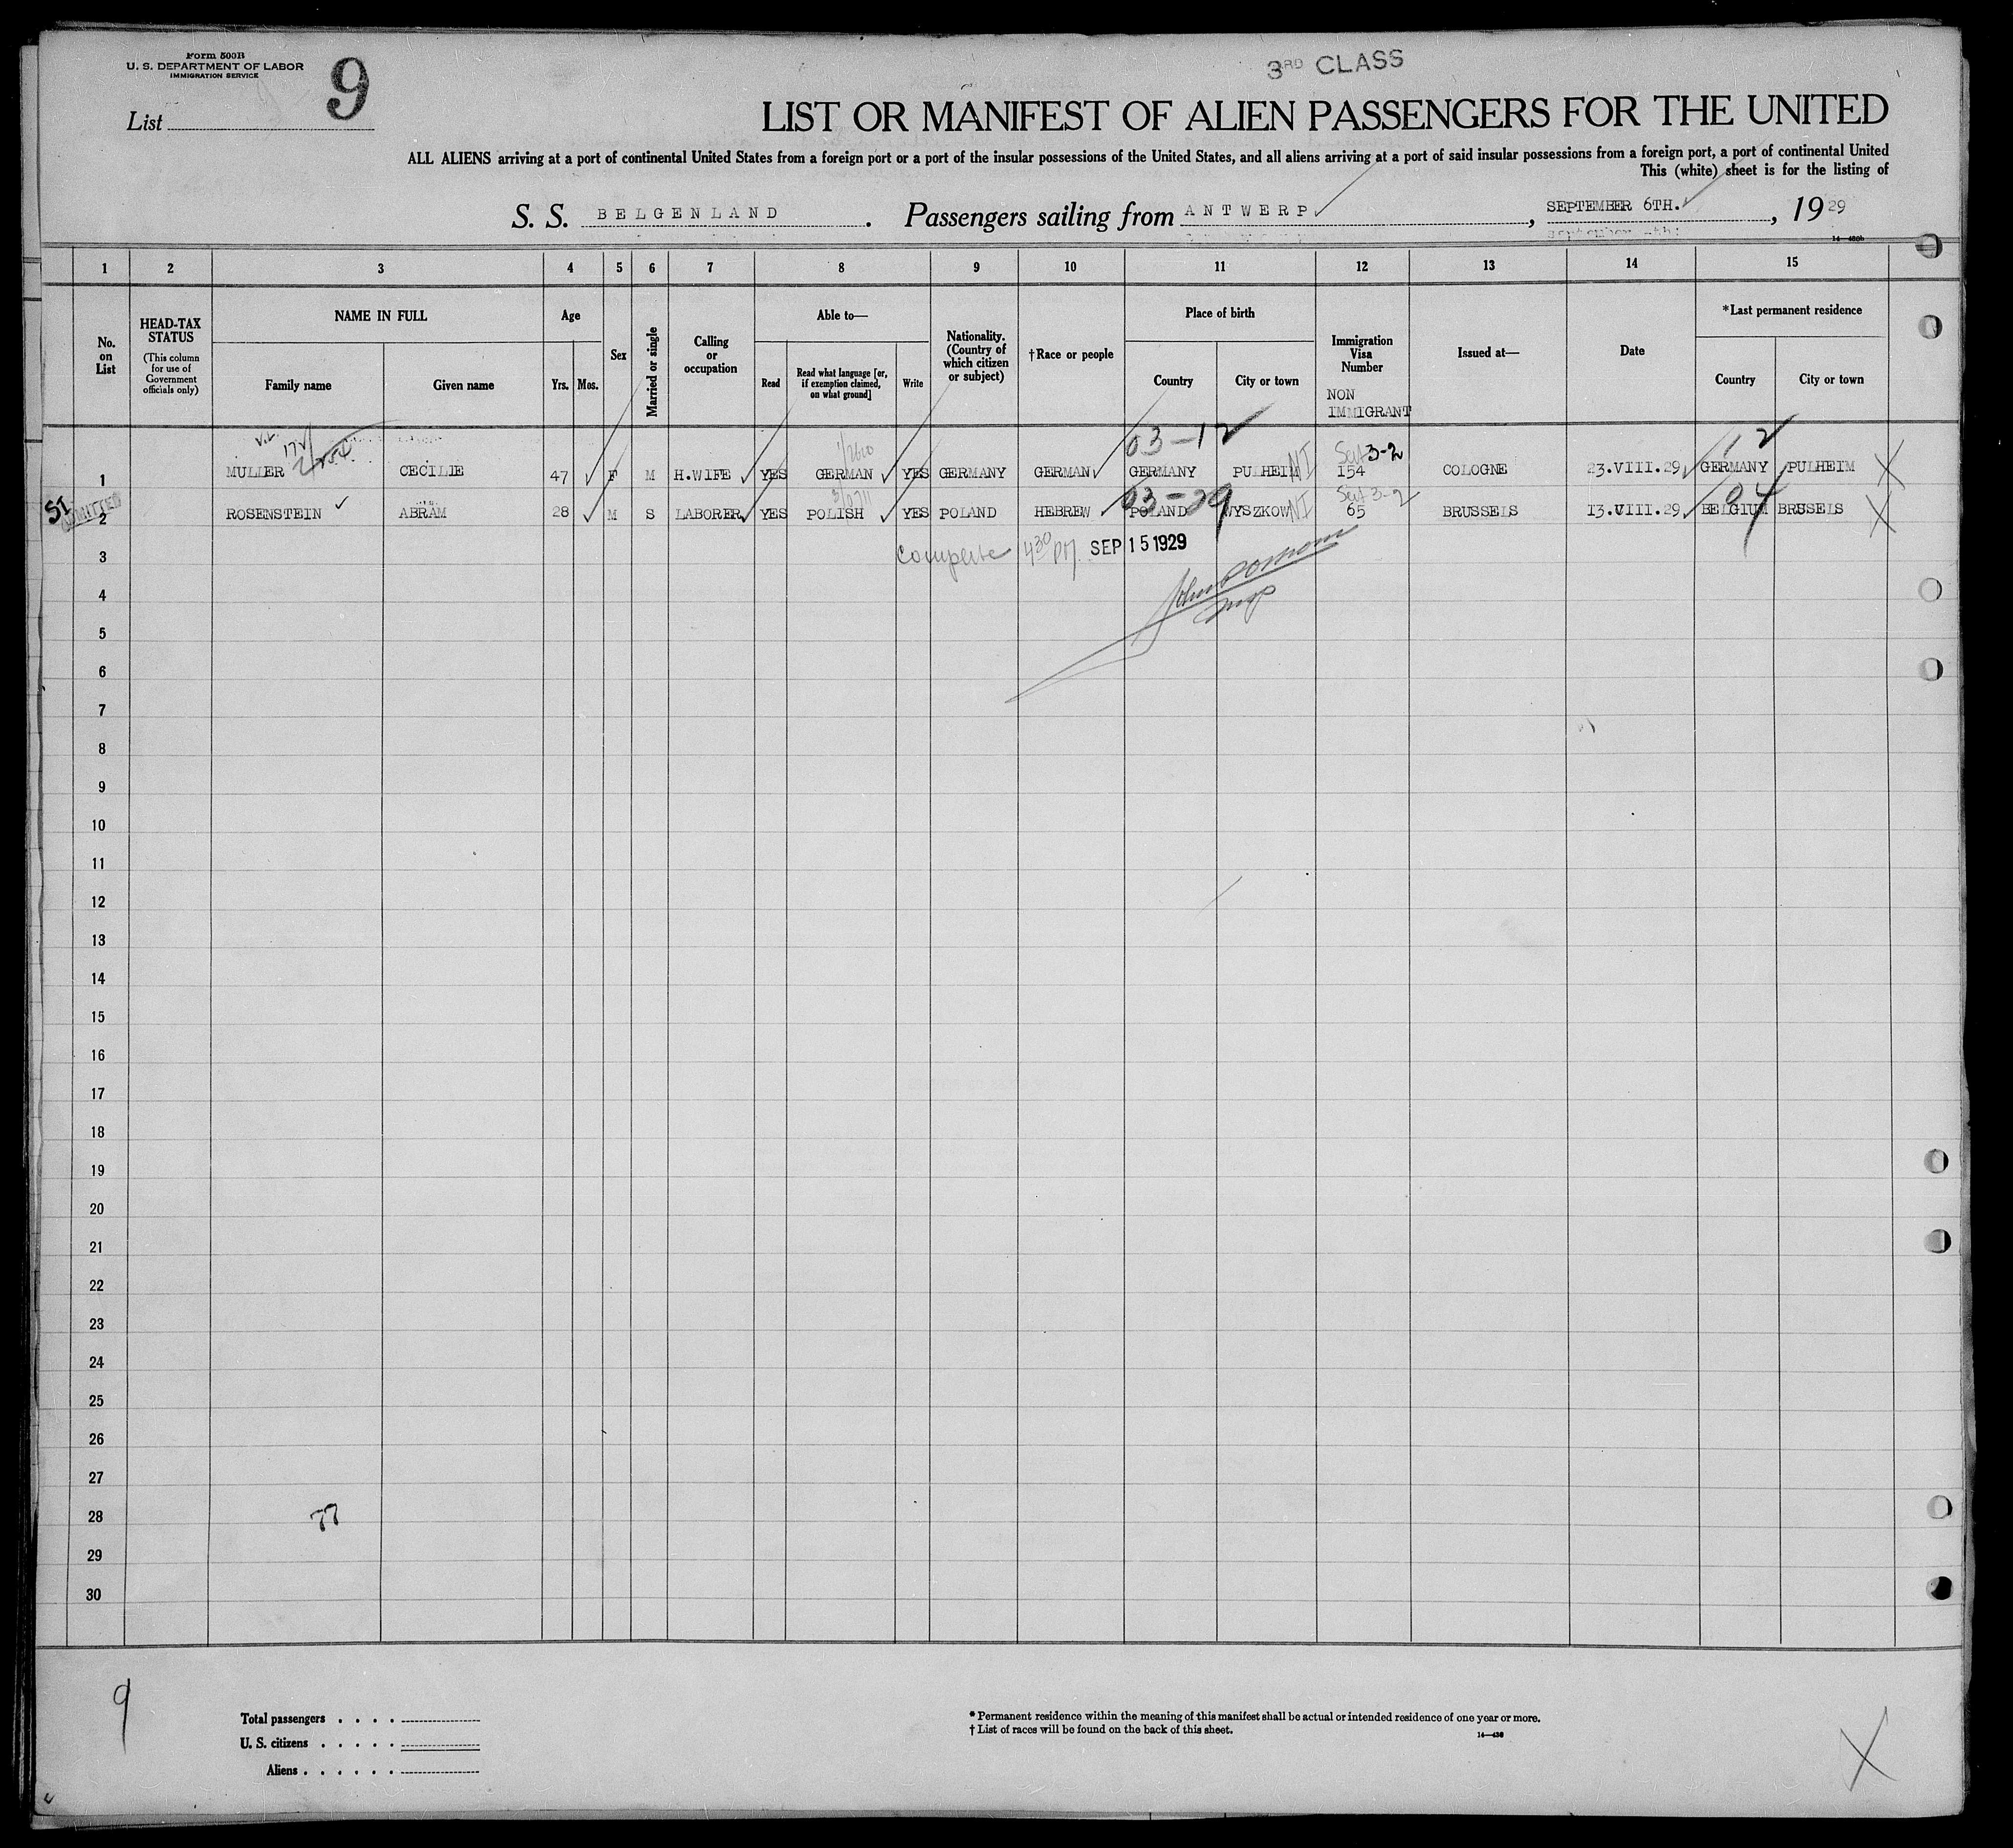 Form 500B
U. S. DEPARTMENT OF LABOR
IMMIGRATION SERVICE
9
3RD CLASS
List
LIST OR MANIFEST OF ALIEN PASSENGERS FOR THE UNITED
ALL ALIENS arriving at a port of continental United States from a foreign port or a port of the insular possessions of the United States, and all aliens arriving at a port of said insular possessions from a foreign port, a port of continental United
This (white) sheet is for the listing of
S. S. BELGENLAND. Passengers sailing from ANTWERP, SEPTEMBER 6TH., 1929
1 2 3 4 5 6 7 8 9 10 11 12 13 14 15
No. on List
HEAD-TAX STATUS (This column for use of Government officials only)
NAME IN FULL
Family name Given name
Age
Yrs. Mos.
Sex
Married or single
Calling or occupation
Able to—
Read Read what language [or, if exemption claimed, on what ground] Write
Nationality. (Country of which citizen or subject)
†Race or people
Place of birth
Country City or town
Immigration Visa Number
NON IMMIGRANT
Issued at—
Date
*Last permanent residence
Country City or town
03-12 3-2 12
1 MULLER CECILIE 47 F M H.WIFE YES GERMAN YES GERMANY GERMAN GERMANY PULHEIM NI 154 COLOGNE 23.VIII.29 GERMANY PULHEIM X
SI ADMITTED
03-29 3-2 04
2 ROSENSTEIN ABRAM 28 M S LABORER YES POLISH YES POLAND HEBREW POLAND WYSZKOW NI 65 BRUSSELS 13.VIII.29 BELGIUM BRSSELS X
3 430 PM SEP 15 1929
4
5
6
7
8
9
10
11
12
13
14
15
16
17
18
19
20
21
22
23
24
25
26
27
28 77
29
30
9
Total passengers . . . .
U. S. citizens . . . . .
Aliens . . . . . .
* Permanent residence within the meaning of this manifest shall be actual or intended residence of one year or more.
† List of races will be found on the back of this sheet.
X